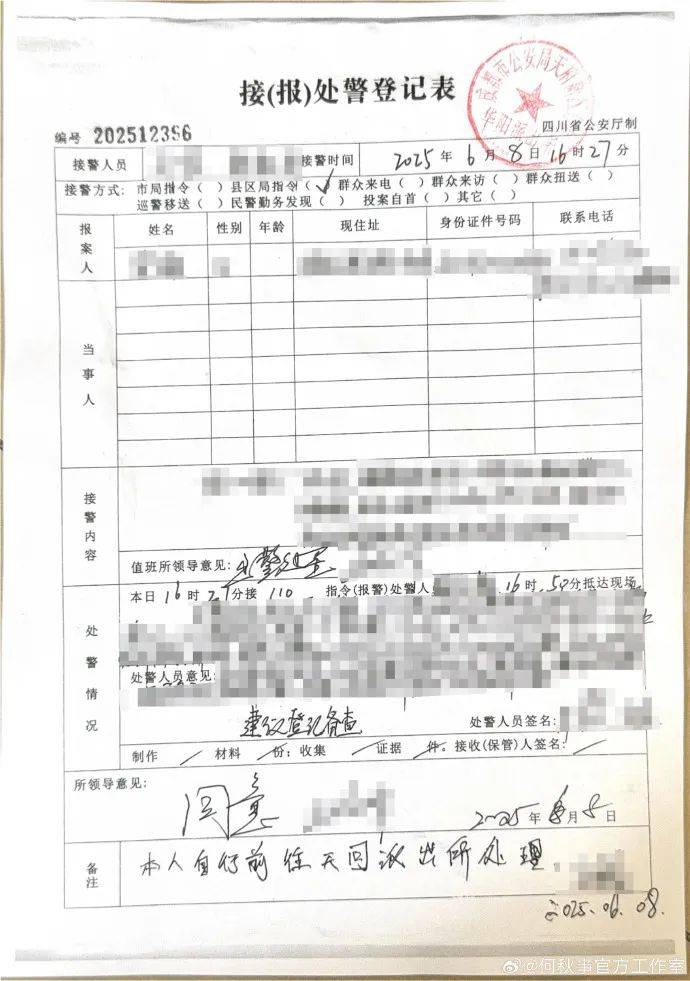 接(报)处警登记表
编号 202512396
四川省公安厅制
接警人员 接警时间 2025年6月8日16时27分
接警方式: 市局指令( ) 县区局指令(✓) 群众来电( ) 群众来访( ) 群众扭送( )
巡警移送( ) 民警勤务发现( ) 投案自首( ) 其它( )
报案人
姓名 性别 年龄 现住址 身份证件号码 联系电话
当事人
接警内容
值班所领导意见:
处警情况
本日16时27分接 110 指令(报警)处警人 16时50分抵达现场
处警人员意见:
建议登记备查
处警人员签名:
制作 / 材料 / 份: 收集 / 证据 / 件。接收(保管)人签名: /
所领导意见:
同意
2025年6月8日
备注
本人自行前往天回派出所处理
2025.06.08.
@何秋事官方工作室